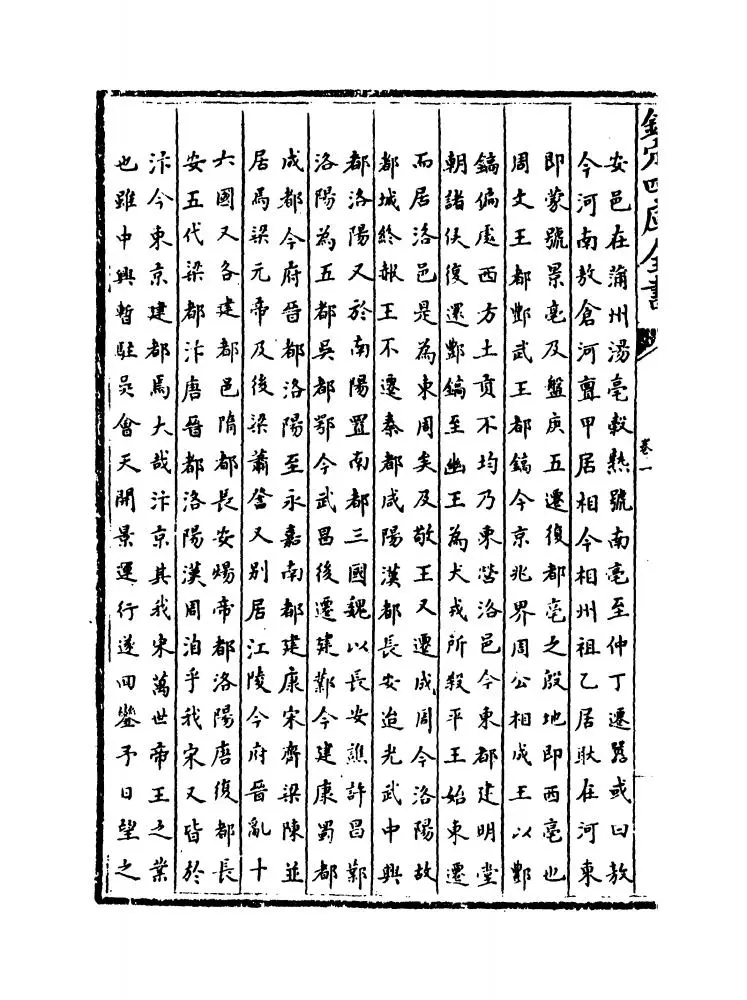 欽定四庫全書
卷一
安邑在蒲州湯亳穀熟號南亳至仲丁遷嚻或曰敖
今河南敖倉河亶甲居相今相州祖乙居耿在河東
即蒙號景亳及盤庚五遷復都亳之殷地即西亳也
周文王都酆武王都鎬今京兆界周公相成王以酆
鎬偏處西方土貢不均乃東營洛邑今東都建明堂
朝諸侯復還酆鎬至幽王為犬戎所殺平王始東遷
而居洛邑是為東周矣及敬王又遷成周今洛陽故
都城終赧王不遷秦都咸陽漢都長安迨光武中興
都洛陽又於南陽置南都三國魏以長安譙許昌鄴
洛陽為五都吳都鄂今武昌後遷建鄴今建康蜀都
成都今府晉都洛陽至永嘉南都建康宋齊梁陳並
居焉梁元帝及後梁蕭詧又别居江陵今府晉亂十
六國又各建都邑隋都長安煬帝都洛陽唐復都長
安五代梁都汴唐晉都洛陽漢周洎乎我宋又皆於
汴今東京建都焉大哉汴京其我宋萬世帝王之業
也雖中興暫駐吳會天開景運行遂回鑾予日望之